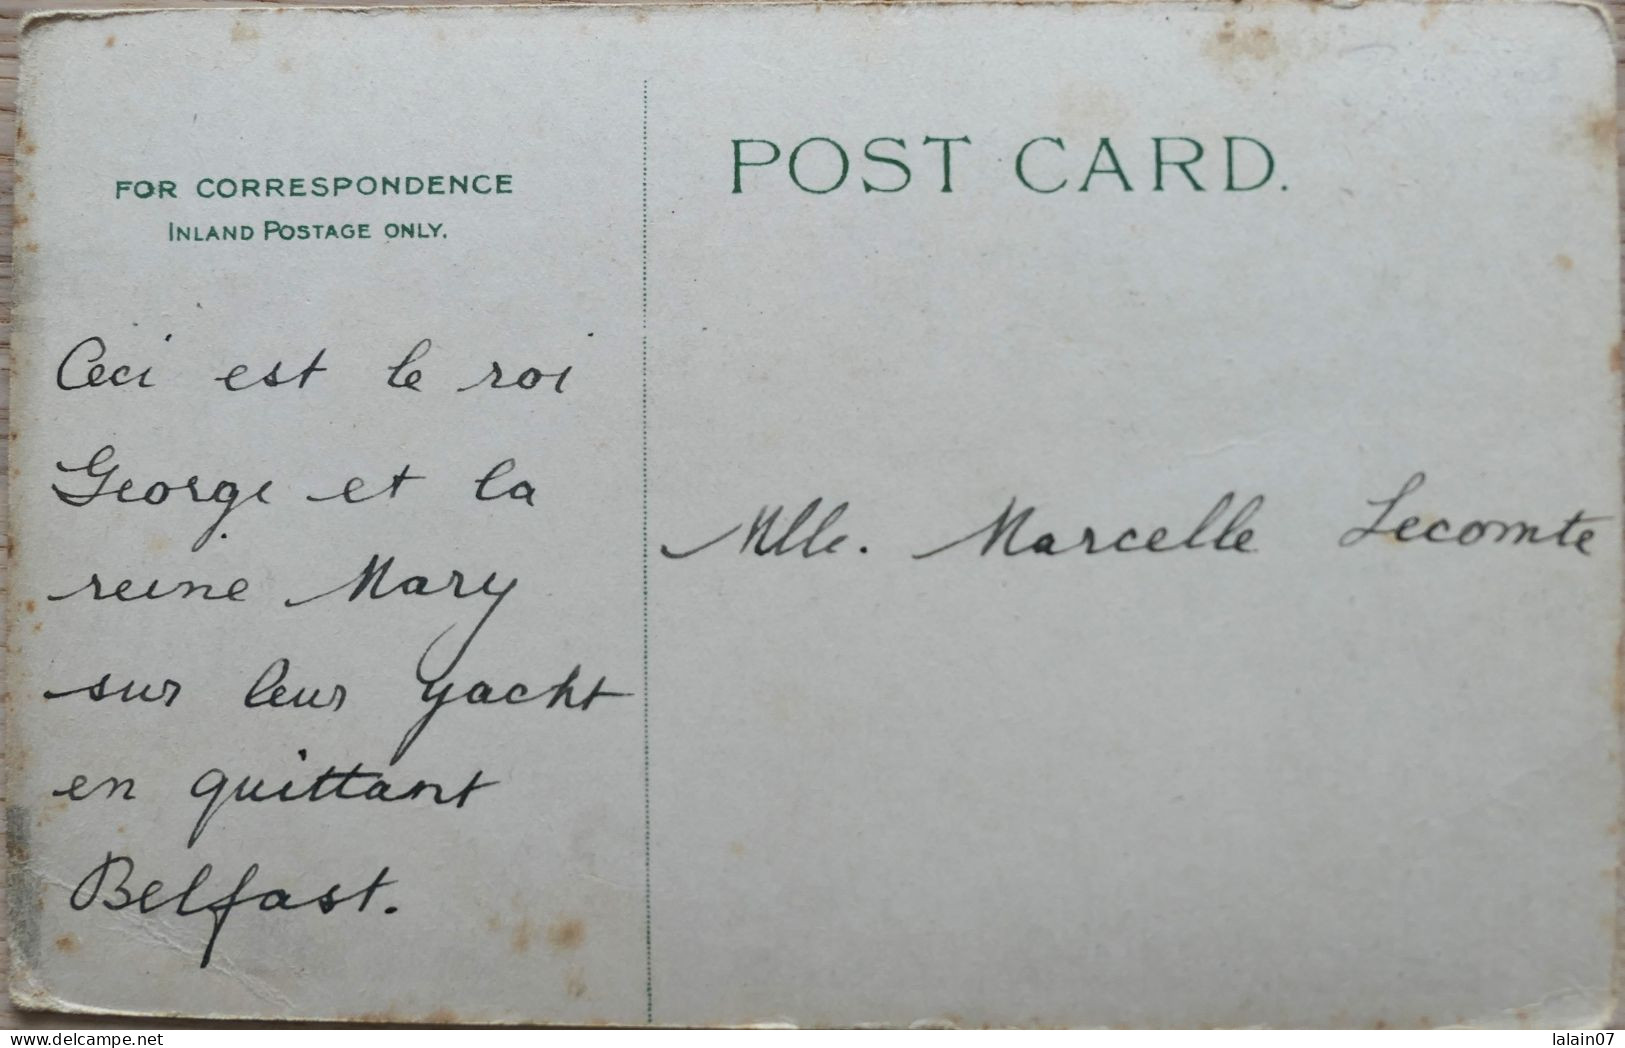 POST CARD.
FOR CORRESPONDENCE
INLAND POSTAGE ONLY.
Ceci est le roi
George et la
reine Mary
sur leur yacht
en quittant
Belfast.
Mlle. Marcelle Lecomte
delcampe.net
lalain07